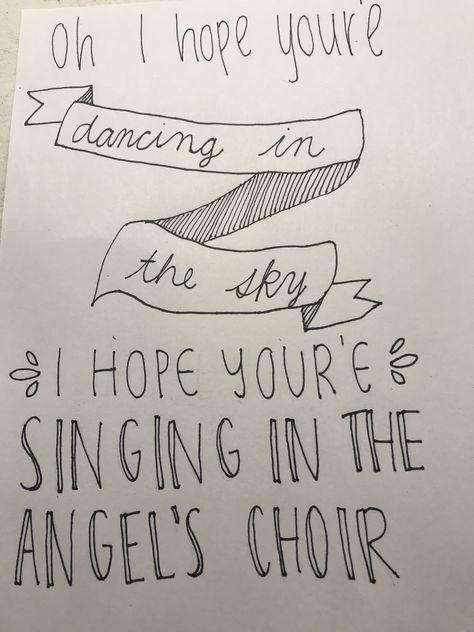 oh I hope your'e
dancing in
the sky
I HOPE YOUR'E
SINGING IN THE
ANGEL'S CHOIR